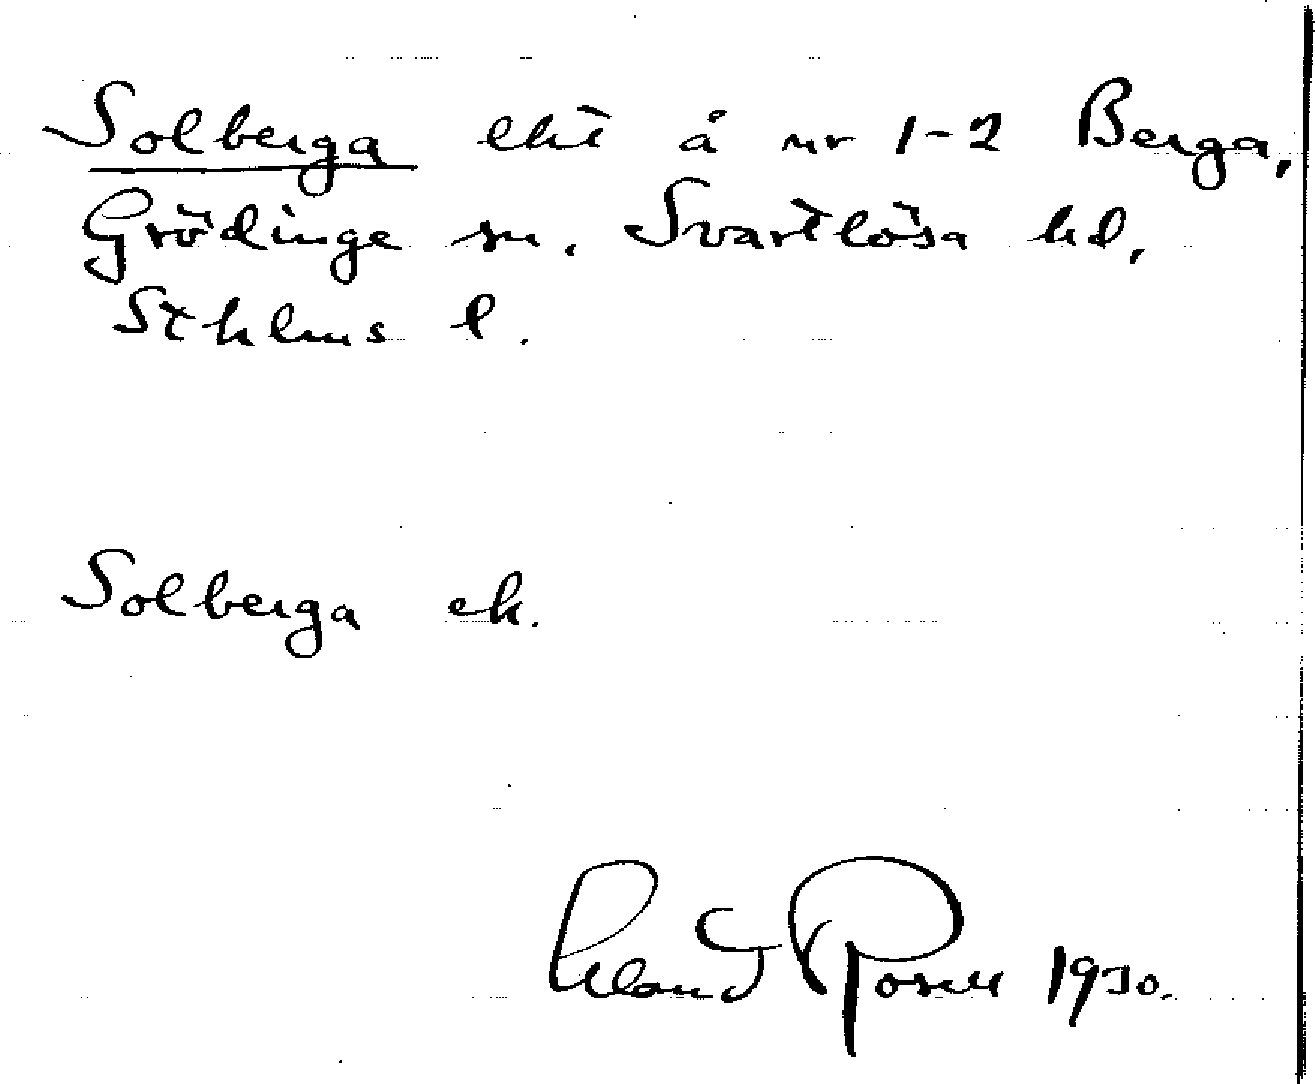 Solberga lht å nr 1-2 Berga,
Grödinge sn. Svartlösa hd,
Sthlms l.
Solberga ek.
Erland Rosell 1930.